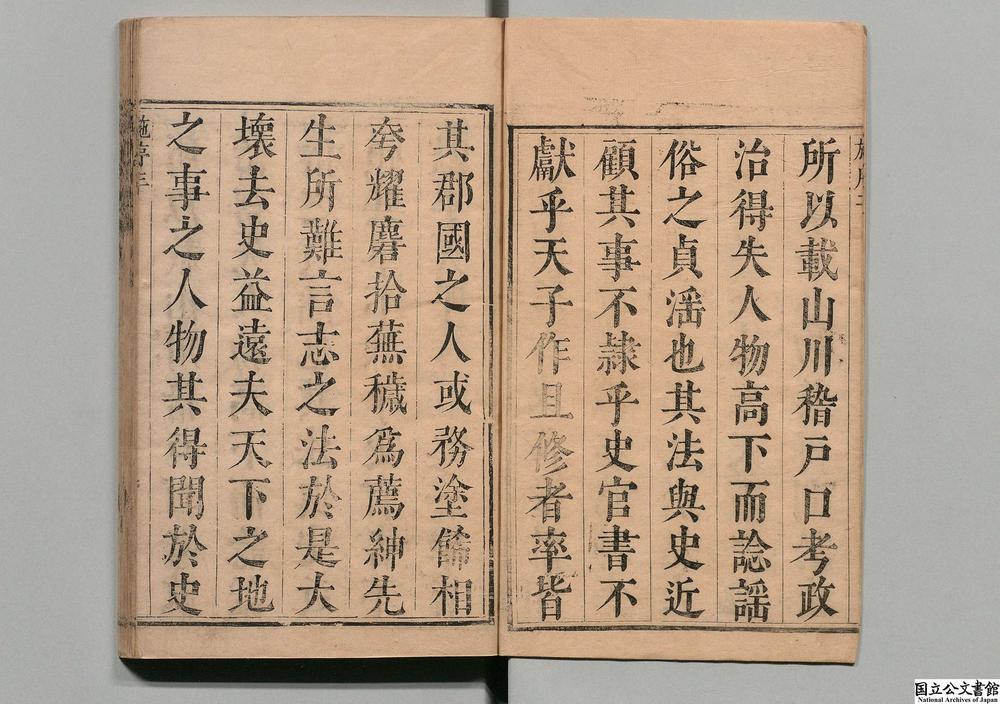 所以載山川稽戶口考政
治得失人物高下而諗謡
俗之貞滛也其法與史近
顧其事不隷乎史官書不
獻乎天子作且修者率皆
其郡國之人或務塗餙相
夸耀麏拾蕪穢爲薦紳先
生所難言志之法於是大
壞去史益遠夫天下之地
之事之人物其得聞於史
施序三
国立公文書館
National Archives of Japan